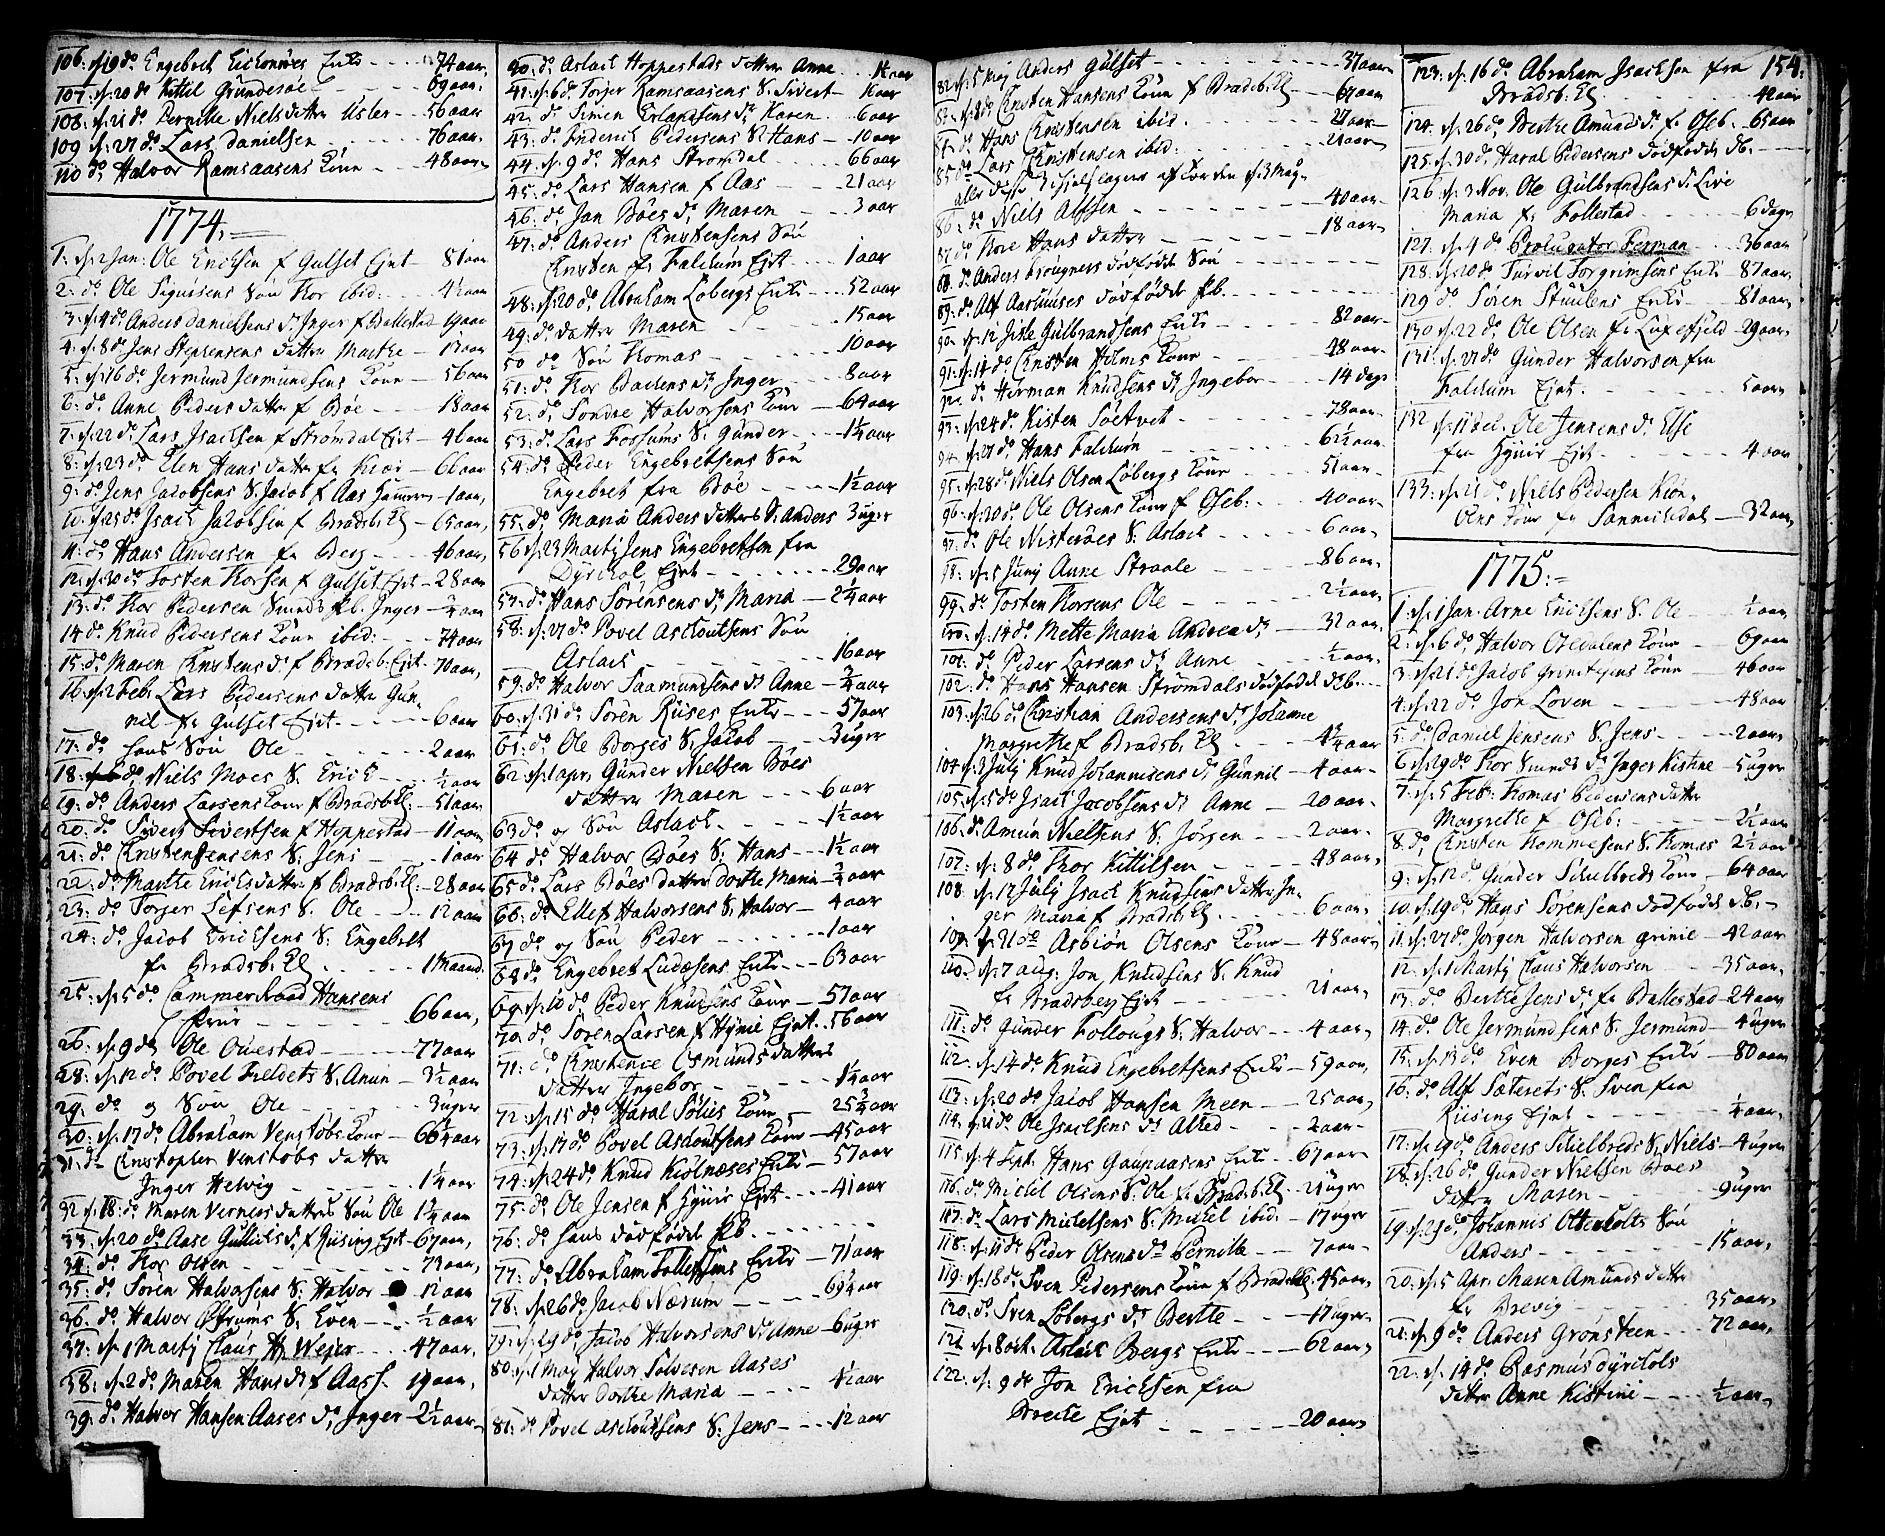 106: d: 19 do Engebret Eichonnes Enke - - - 74 aar,
107: d: 20 do Kittil Grundesöe - - - 69 aar,
108: d: 21 do Pernille Nielsdatter Usler - 56 aar
109 d: 27 do Lars Danielsen - - - 76 aar,
110 do Halvor Ramsaasens Kone - - - 48 aar,
1774.
1: d: 2 Jan: Ole Ericksen f Gulset Ejet - 81 aar
2: do Ole Sigursens Sön Thor ibid: - - 4½ aar
3: d: 4 do Anders Danielsens dr Inger f Ballestad 19 aar
4: d: 8 do Jens Stephensens datter Marthe - 13 aar
5: d: 16 do Jermund Jermundsens Kone - 56 aar
6: do Anne Pedersdatter f Böe - - 18 aar
7: d: 22 do Lars Isachsen f Strömdal Ejet - 46 aar
8: d: 23 do Elen Hansdatter fr - 66 aar
9: do Jens Jacobsens S. Jacob f Aas - 1 aar,
10: d: 25 do Isach Jacobsen f Bradsb: Ejet - 65 aar,
11: do Hans Andersen fr Berg - - 46 aar,
12: d: 30 do Tosten Thorsen f Gulset Ejet - 28 aar
13: do Thor Pedersen Smeds pb. Inger - ¾ aar
14 do Knud Pedersens Kone ibid: - - 74 aar
15: do Maren Christensdr f Bradsb: Ejet - 70 aar,
16: d: 2 Feb: Lars Pedersens datter Gun-
nil fr Gulset Ejet - - - 6 aar
17: do hans Sön Ole - - - 2 aar
18: do Niels Moes S. Erick - - - ½ aar
19: do Anders Larsens Kone f Bradsb: Ejet: - 51 aar
20: do Sivert Sivertsen f Hoppestad - 11 aar
21: do Christen Jensens S: Jens - 1 aar
22: do Marthe Ericksdatter f Bradsb: Ejet: - 28 aar
23: do Torger Lefsens S. Ole - - 12 aar
24: do Jacob Ericksens S: Engebret
fr Bradsb. Ejet - - - 1 Maaned.
25: d: 5 do Cammerraad Hansens
frue - - - 66 aar,
26: d: 9 do Ole Ouestad - - - 77 aar
28: d: 12 do Povel Fieldets S. Amun - 3½ aar
29: do og Sön Ole - - - 3 uger
30: d: 17 do Abraham Venstöbs Kone - 66¼ aar
31: do Christopher Venstöbs datter
Inger Helvig - - - 1¼ aar
32 d: 18: do Maren Verners datters Sön Ole 1¼ aar
33: d: 20 do Aase Gullichsdr f Riising Ejet - 67 aar,
34: do Thor Olsen - - - 73 aar,
35: do Sören Halvorsens S: Halvor 12 aar
36: do Halvor Oftrums S. Even - - ½ aar
37: d: 1 Martj Claus H. Wejer - - - 47 aar,
38: d: 2 do Maren Hansdr f Aas - 19 aar,
39: do Halvor Hansen Aases dr Inger - 2½ aar -
40. do Aslach Hoppestads datter Anne - - 14 aar
41: d: 6 do Torger Ramsaasens S. Sivert - 1 aar
42: do Simen Erlandsens dr Karen - 6 aar
43: do Diderich Pedersens S. Hans - 10 aar
44: d: 9 do Hans Stromdal - - - 66 aar
45: do Lars Hansen f Aas - - 21 aar
46: do Jan Böes dr Maren - - 3 aar
47: do Anders Christensens Sön
Christen fr Faldum Ejet - - 1 aar
48: d: 20 do Abraham Lobergs Enke - - 52 aar
49: do datter Maren - - - 15 aar
50 do Sön Thomas - - - 10 aar
51: do Thor Bachens dr Inger - - 8 aar
52: do Sondre Halvorsens Kone - 64 aar
53: do Lars Fossums S. Gunder - - 1¼ aar
54: do Peder Engebretsens Sön
Engebret fra Böe - - - 1½ aar
55: do Maria Anders datters S: Anders 3 uger
56 d: 23 Martj Jens Engebretsen fra
Dyrchol Ejet - - - 29 aar
57: do Hans Sörensens dr Maria - 2¼ aar
58: d: 27 do Povel Aschoutsens Sön
Aslach - - - 16 aar
59: do Halvor Saamundsens dr Anne - ¾ aar
60: d: 31 do Sören Riises Enke - - - 57 aar
61: do Ole Borges S: Jacob - - - 3 uger
62: d: 1 Apr. Gunder Nielsen Böes
datter Maren - - - 6 aar
63 do og Sön Aslach - - - 1½ aar
64 do Halvor Böes S: Hans - - 1½ aar
65: do Lars Böes datter Dorthe Maria - ¾ aar
66: do Ellef Halvorsens S: Halvor - 4 aar
67 do og Sön Peder - - - 1 aar
68 do Engebret Ludvesens Enke - - 63 aar
69: d: 10 do Peder Knudsens Kone - 57 aar
70: do Sören Larsen f Hynie Ejet - 56 aar
71: do Christence Osmunds datters
datter Ingebor - - - 1¼ aar
72: d: 15 do Haral Sölies Kone - - 25¾ aar
73: d: 17 do Povel Aschoutsens Kone - 45 aar
74: d: 24 do Knud Kiölnæses Enke - 57 aar
75: do Ole Jensen f Hynie Ejet - - - 41 aar
76: do hans dödfödde pb. - - -
77: do Abraham Tollefsens Enke - - 71 aar
78: d: 26 do Jacob Nærum - - - 69¼ aar
79: d: 29 do Jacob Halvorsens dr Anne - 6 uger
80: d: 1 Maj Halvor Solvesen Aases
datter Dorthe Maria - - - 4½ aar
81: do Povel Aschoutsens S: Jens - - - 12 aar
82: d: 5 Maj Anders Gulset - - - 37 aar
83: d: 8 do Christen Hansens Kone f Bradsb: Ejet - - 61 aar
84: do Hans Christensen ibid. - - - 24 aar -
85 do Lars Christensen ibid: - - - 21 aar -
alle disse af d: 3 Maj -
86: do Niels Alfsen - - - 40 aar -
87: do Thore Hans datter - - - 18 aar -
88: do Anders Krougners dödfödde Sön - - -
89: do Alf Aarhuuses dödfödde pb. - - -
90: d: 12 Gulbrandsens Enke - - - 82 aar -
91: d: 14 do Christen Holms Kone - - - 48 aar -
92: do Herman Knudsens dr Ingebor - - 14 dage
93: d: 24 do Kisten Söetvet - - - 78 aar -
94: d: 27 do Hans Faldum - - - 6½ aar -
95: d: 28 do Niels Olsen Lobergs Kone - - 51 aar -
96: d: 30 do Ole Olsens Kone f Oseb: - - 40 aar -
97: do Ole Nisteröes S: Aslach - - 6 aar -
98: d: 5 Junij Anne Straale - - - 86 aar -
99: do Tosten Thorsens Ole - - - 2½ aar -
100: d: 14 do Mette Maria Andreadr - 32 aar,
101: do Peder Larsens dr Anne - - ½ aar -
102: do Hans Hansen Strömdals dödfödde dtb. - -
103: d: 26 do Christian Andersens dr Johanne
Margrethe f Bradsb: Ejet - - 4¾ aar
104 d: 3 Julij Knud Johannesens dr Gunnil - 4 aar -
105: d: 5 do Isach Jacobsens dr Anne - 20 aar -
106: do Amun Nielsens S: Jörgen - - 2 aar -
107: d: 8 do Thor Kittilsen - - - 48 aar,
108 d: 17 Julij Isach Knudsens datter In-
ger Maria f Bradsb: Ejet - - - 6 aar,
109: d: 21 do Asbiön Olsens Kone - 48 aar,
110: d: 7 Aug: Jon Knudsens S. Knud
fr Bradsberg Ejet - - - 21 aar,
111: do Gunder Follougs S: Halvor - - 4 aar,
112: d: 14 do Knud Engebretsens Enke - - 59 aar,
113: d: 20 do Jacob Hansen Meen - - 25 aar,
114: d: 21 do Ole Isachsens dr Alhed - - 2 aar -
115: d: 4 Sept. Hans Gaupaasens Enke - 67 aar -
116: do Michel Olsens S: Ole fr Bradsb: Ejet - 21 uger
117: do Lars Michelsens S: Michel ibid. - 17 uger
118: d: 11 do Peder Olsens dr Pernille - - 7 aar -
119: d: 18 do Sven Pedersens Kone f Bradsb: Ejet 45 aar,
120: do Sven Lobergs dr Berthe - - 17 uger -
121 d: 8 Oct: Aslach Bergs Enke - - - 62 aar,
122: d: 9 do Jon Ericksen fra
Brecke Ejet - - - 20 aar,
154.
123: d: 16 do Abraham Isachsen fra
Bradsb: Ejet - - - 42 aar
124: d: 26 do Berthe Amundsdr f Oseb: - 65 aar
125: d: 30 do Haral Pedersens dödfödde db. - -
126 d: 3 Nov: Ole Gulbrandsens dr Live
Maria fr Follestad - - - 6 dage
127: d: 4 do Procurator Ferman - - 36 aar
128: d: 10 do Turvil Torgrimsens Enke - 87 aar,
129 do Sören Stuulens Enke - - 81 aar,
130 d: 22 do Ole Olsen fr Luxefjeld - 29 aar,
131: d: 27 do Gunder Halvorsen fra
Faldum Ejet. - - - 5 aar,
132 d: 11 Dec. Ole Jensens dr Else
fra Hynie Ejet - - - 4 aar
133: d: 21 do Niels Pedersen
Kone fr Sannikedal - 32 aar,
1775:
1 d: 1 Jan: Arne Ericksens S. Ole - ½ aar,
2: d: 6 do Halvor Aledalens Kone - 69 aar
3: d: 21 do Jacob Grinitejens Kone 46 aar
4: d: 22 do Jon Loven - - - 48 aar
5: do Daniel Jensens S. Jens - - 2 aar,
6: d: 29 do Thor Smeds dr Inger Kistine - 5 uger
7: d: 5 Feb: Thomas Pedersens datter
Margrethe f Oseb: - - - 2½ aar
8: do Christen Kemmesens S. Thomas 2½ aar
9: d: 12 do Gunder Schelbreds Kone - 64 aar
10: d: 19 do Hans Sörensens dödfödde db. -
11: d: 27 do Jörgen Halvorsen Grinie - 42 aar
12: d: 1 Martj Claus Halvorsen - - 35 aar,
13: do Berthe Jensdr fr Ballestad - 24 aar
14: do Ole Jermundsens S. Jermund - 4 uger
15: d: 13 do Even Borges Enke - 80 aar
16: do Alf Sæterets S. Sven fra
Riising Ejet - - - ¼ aar,
17: d: 19 do Anders Schelbreds S. Niels - 4 uger
18: d: 26 do Gunder Nielsen Böes
datter Maren - - - 9 uger
19: d: 29 do Johannis Otterholts Sön
Anders - - - 15 aar,
20: d: 5 Apr: Maren Amunds datter
fr Brevig - - - 35 aar,
21: d: 9 do Anders Grönsteen - - - 72 aar,
22: d: 14 do Rasmus Dyrchols
datter Anne Kistine - - - ½ aar,